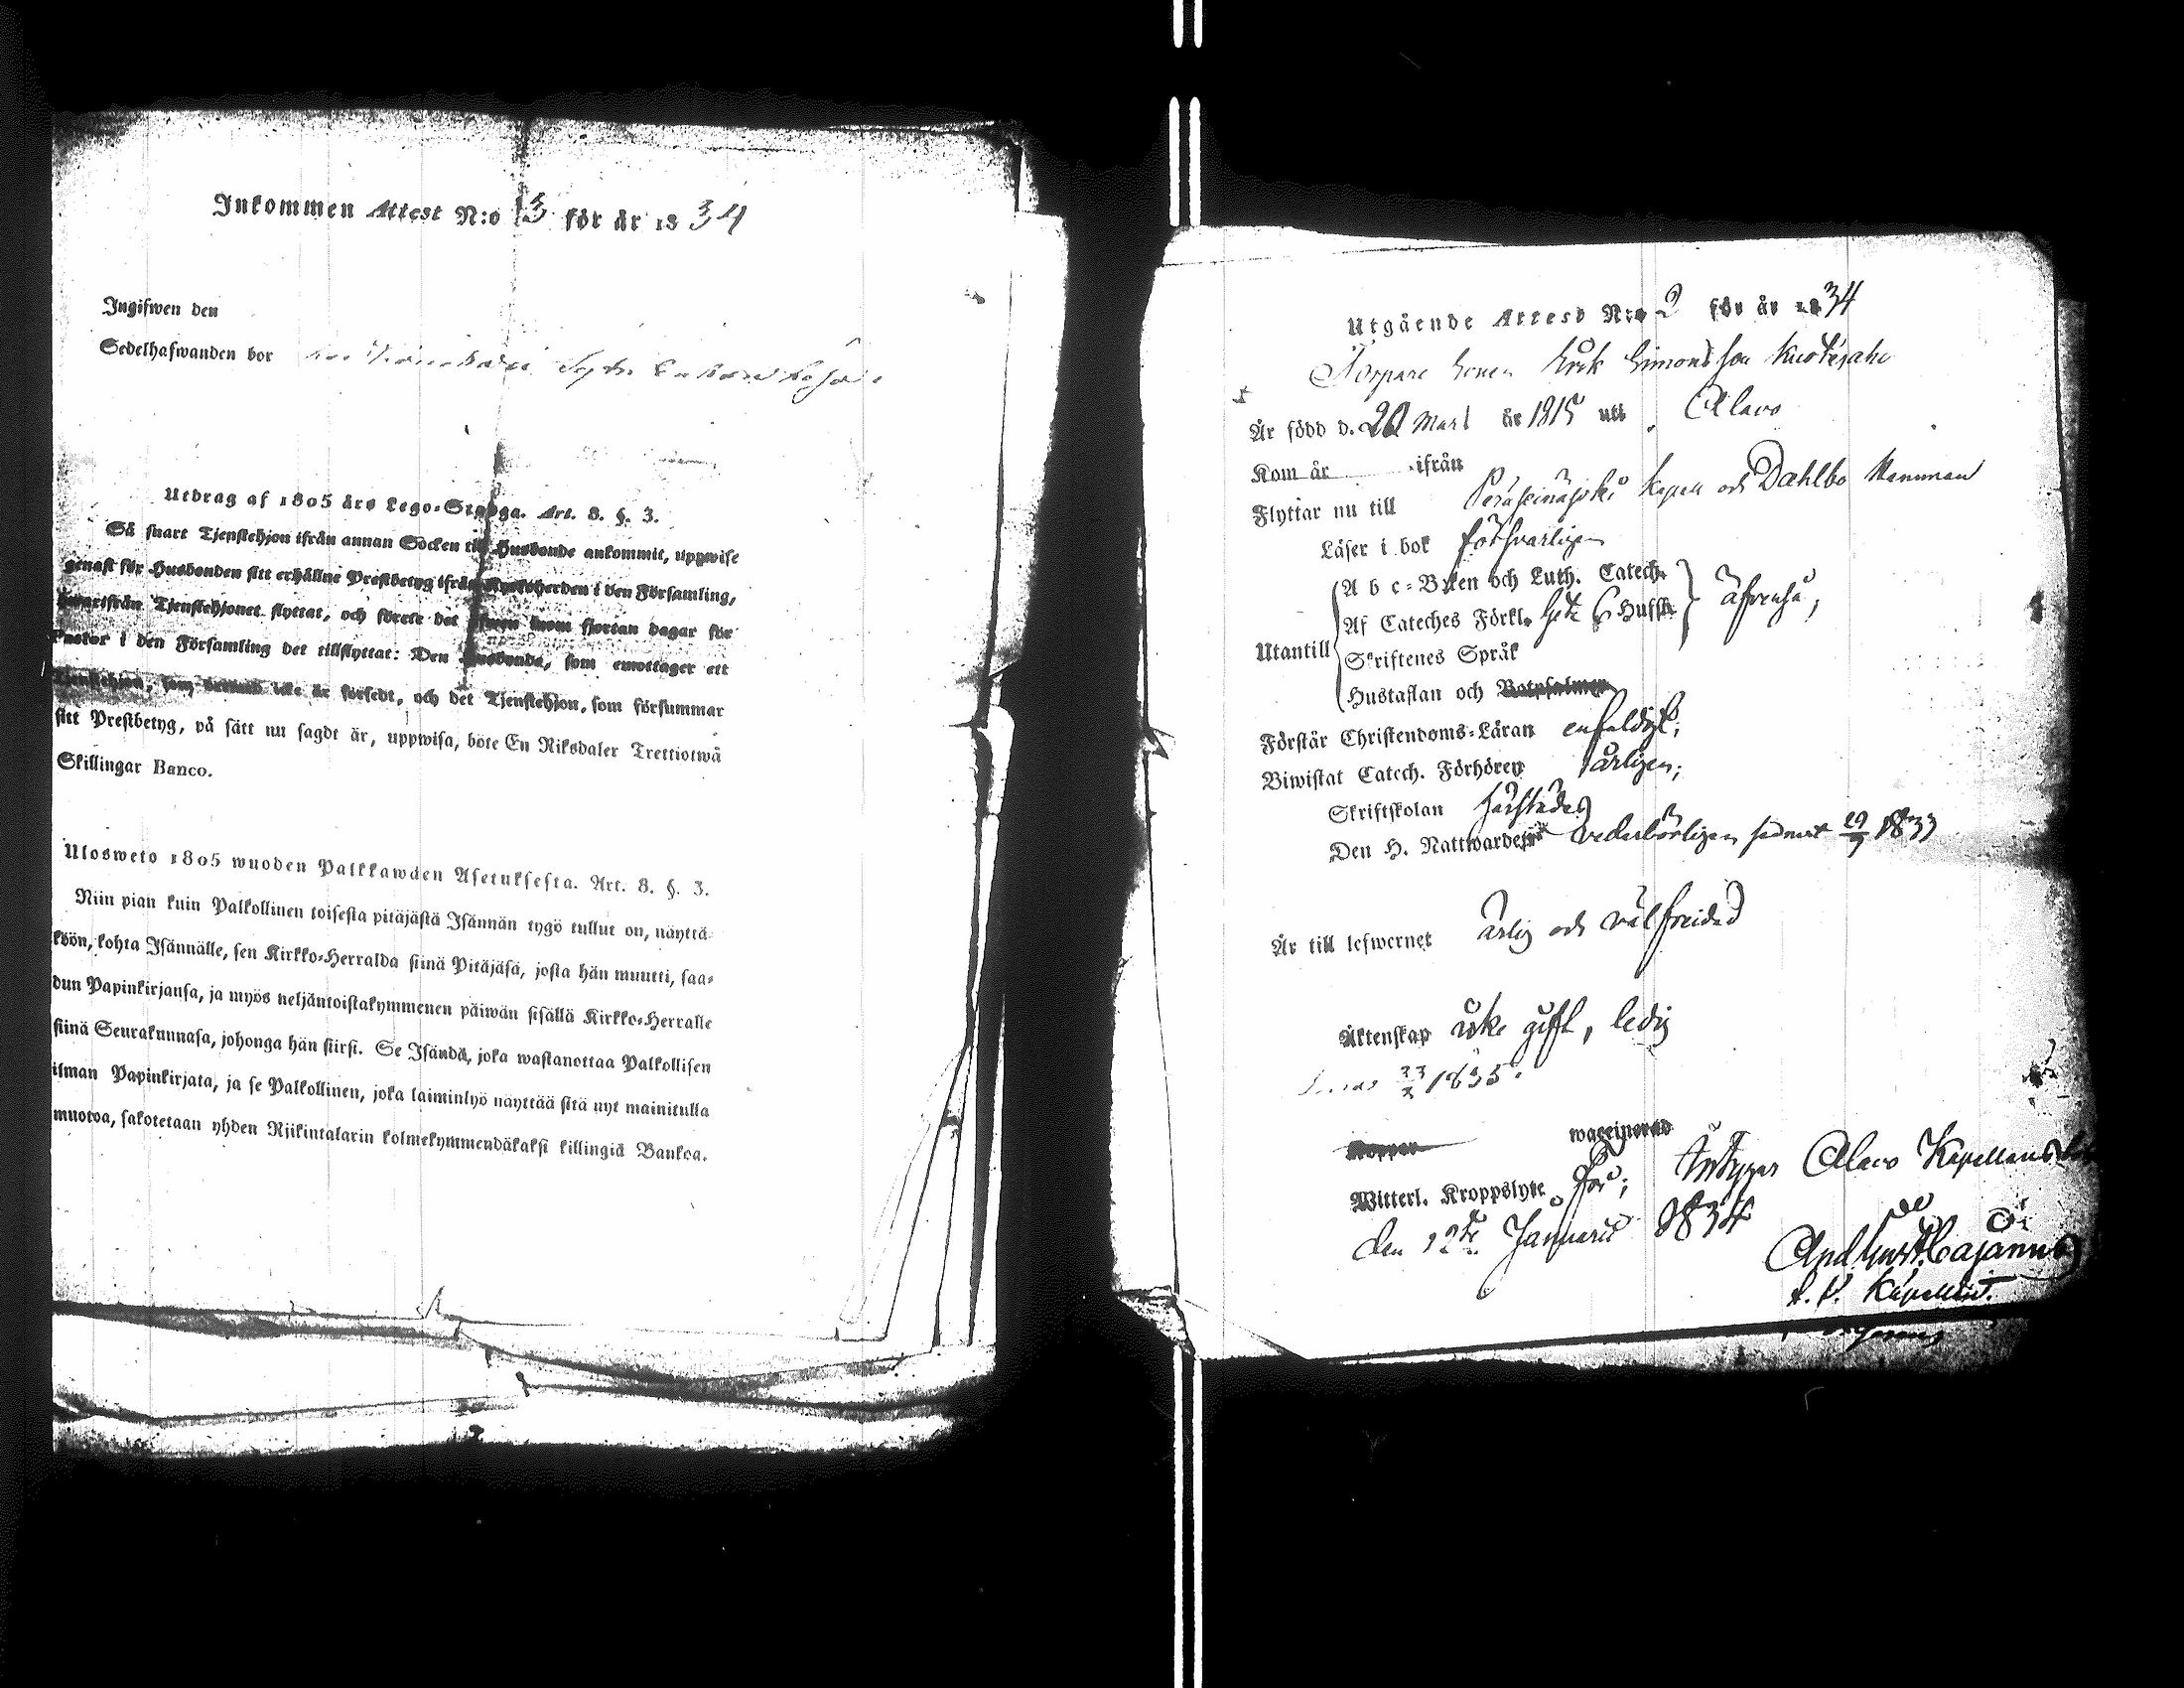 Inkommen Attest N:o 13 för år 1834
Ingifwen den
Sedelhafwanden bor
Utdrag af 1805 års Lego-Stadga. Art. 8. §. 3.
Så snart Tjenstehjon ifrån annan Socken till Husbonde ankommit, uppwise
genast för Husbonden sitt erhållne Prestbetyg ifrån Kyrkoherden i den Församling,
hwarifrån Tjenstehjonet flyttat, och förete det äfwen inom fjortan dagar för
Pastor i den Församling det tillflyttat: Den Husbonde, som emottager ett
Tjenstehjon, som dermed icke är försedt, och det Tjenstehjon, som försummar
sitt Prestbetyg, på sätt nu sagdt är, uppwisa, böte En Riksdaler Trettiotwå
Skillingar Banco.
Ulosweto 1805 wuoden Palkkawäen Asetuksesta. Art. 8. §. 3.
Niin pian kuin Palkollinen toisesta pitäjästä Isännän tygö tullut on, näyttä-
köön, kohta Isännälle, sen Kirkko-Herralda siinä Pitäjäsä, josta hän muutti, saa-
dun Papinkirjansa, ja myös neljäntoistakymmenen päiwän sisällä Kirkko-Herralle
siinä Seurakunnasa, johonga hän siirsi. Se Isändä, joka wastanottaa Palkollisen
ilman Papinkirjata, ja se Palkollinen, joka laiminlyö näyttää sitä nyt mainitulla
muotoa, sakotetaan yhden Rjikintalarin kolmekymmendäkaksi killingiä Bankoa.
Utgående Attest N:o 2 för år 1834
Torpare Sonen Erik Simonsson Kuotesaho
Är född d. 20 Mars år 1815 uti Alavo
Kom år ifrån
Flyttar nu till Peräseinäjoki Kapell och Dahlbo Hemman
Läser i bok försvarligen
A b c-Boken och Luth. Catech.
Af Cateches Förkl. Huffst. äfvenså;
Utantill
Skriftenes Språk
Hustaflan och Botpsalmen
Förstår Christendoms-Läran enfaldigt;
Biwistat Catech. Förhören årligen;
Skriftskolan härstädes
Den H. Nattwarden vederbörligen senast 29/9 1833
Är till lefwernet ärlig och välfreidad
Äktenskap icke gift, ledig
1835.
Koppor waccinerad
Witterl. Kroppslyte För; intygar Alavo Kapellans
den 12te Januarii 1834
And. Gust. Cajanus
v. P. Kapellan.